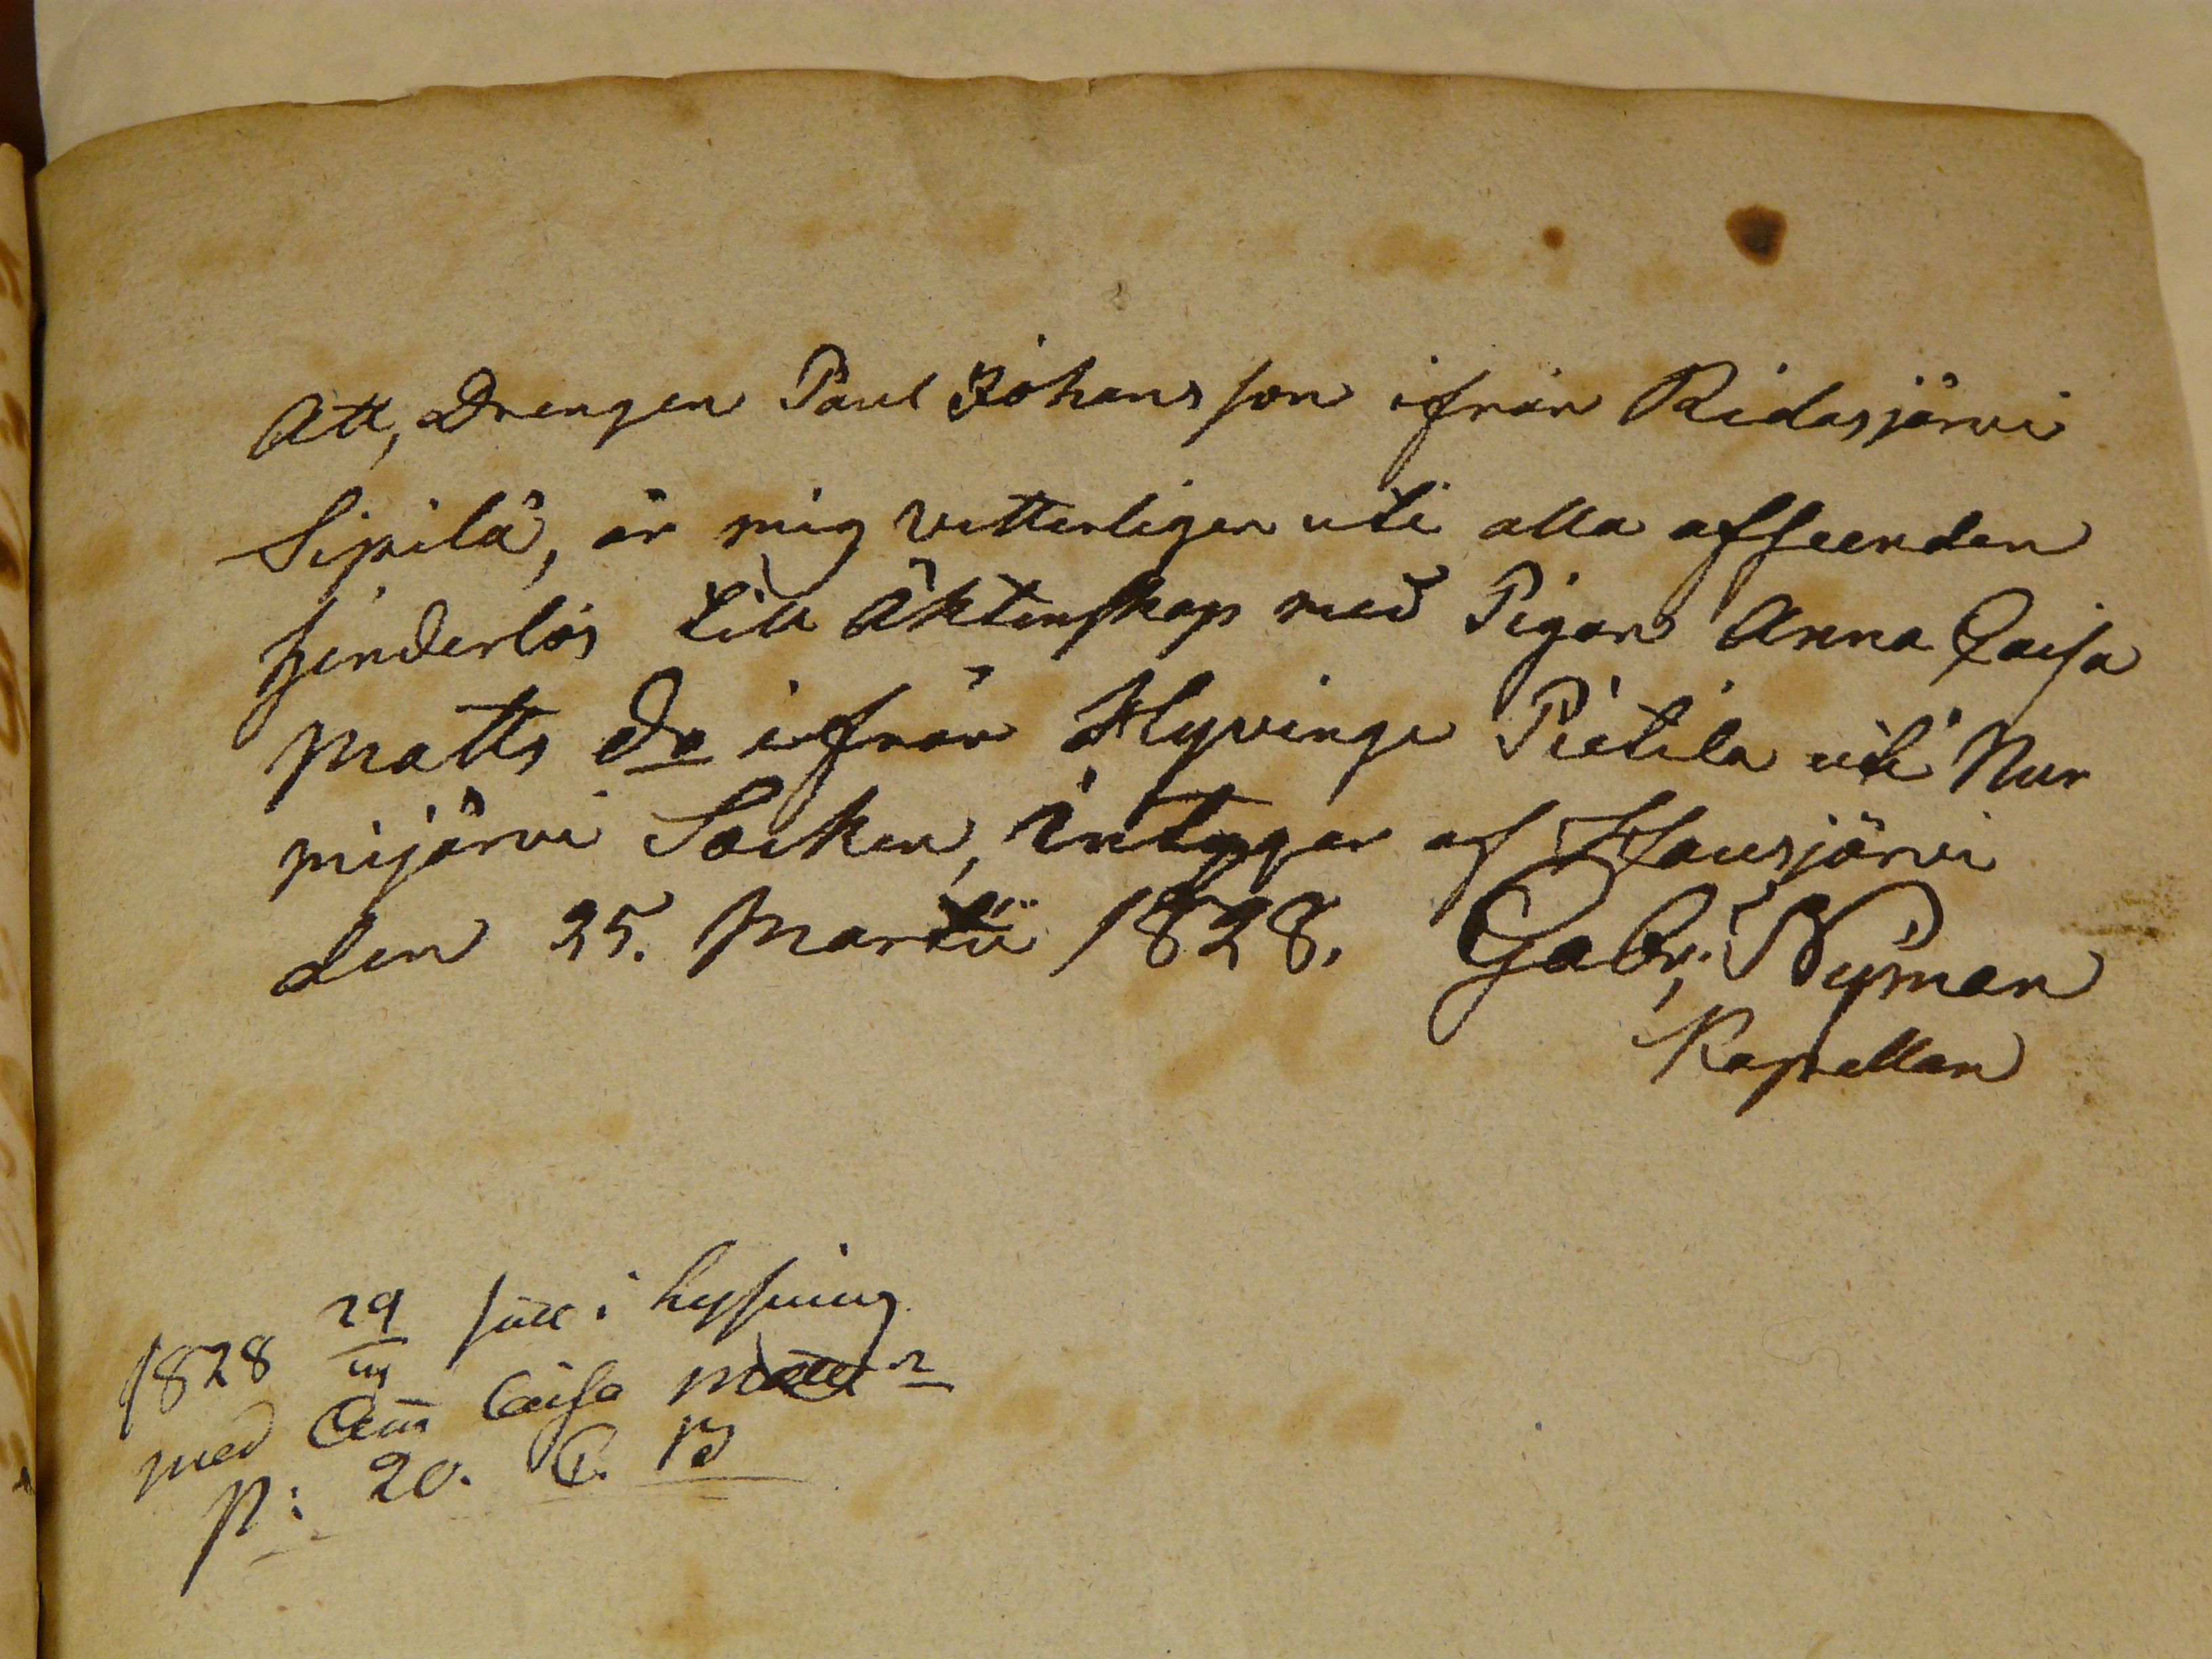 Att, Drengen Paul Johansson ifrån Ridasjärvi
Sipilä, är mig vitterligen uti alla afseenden
hinderlös till Äktenskap med Pigan Anna Caisa
Matts dr ifrån Hyvinge Pietilä uti Nur
mijärvi Socken, intygar af Hausjärvi
den 25. Martii 1828. Gabr. Nyman
Kapellan
1828 29/III till i lysning
med Ann Caisa
p: 20. C. B